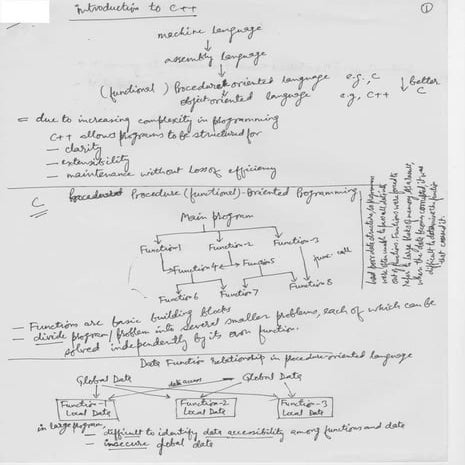 Introduction to C++
1
machine language
assembly language
(functional) Procedure oriented language e.g., C
object oriented language e.g., C++
better C
= due to increasing complexity in programming
C++ allows programs to be structured for
— clarity
— extensibility
— maintenance without loss of efficiency
C Procedure (functional)-Oriented Programming
Main program
Function-1 Function-2 Function-3
Function4 Function5
func. call
Function6 Function7 Function8
— Functions are basic building blocks
— divide program/problem into several smaller problems, each of which can be
solved independently by its own function.
Data Function relationship in procedure-oriented language
Global Data data access Global Data
Function-1 Function-2 Function-3
Local Data Local Data Local Data
in large program,
— difficult to identify data accessibility among functions and data
— insecure global data